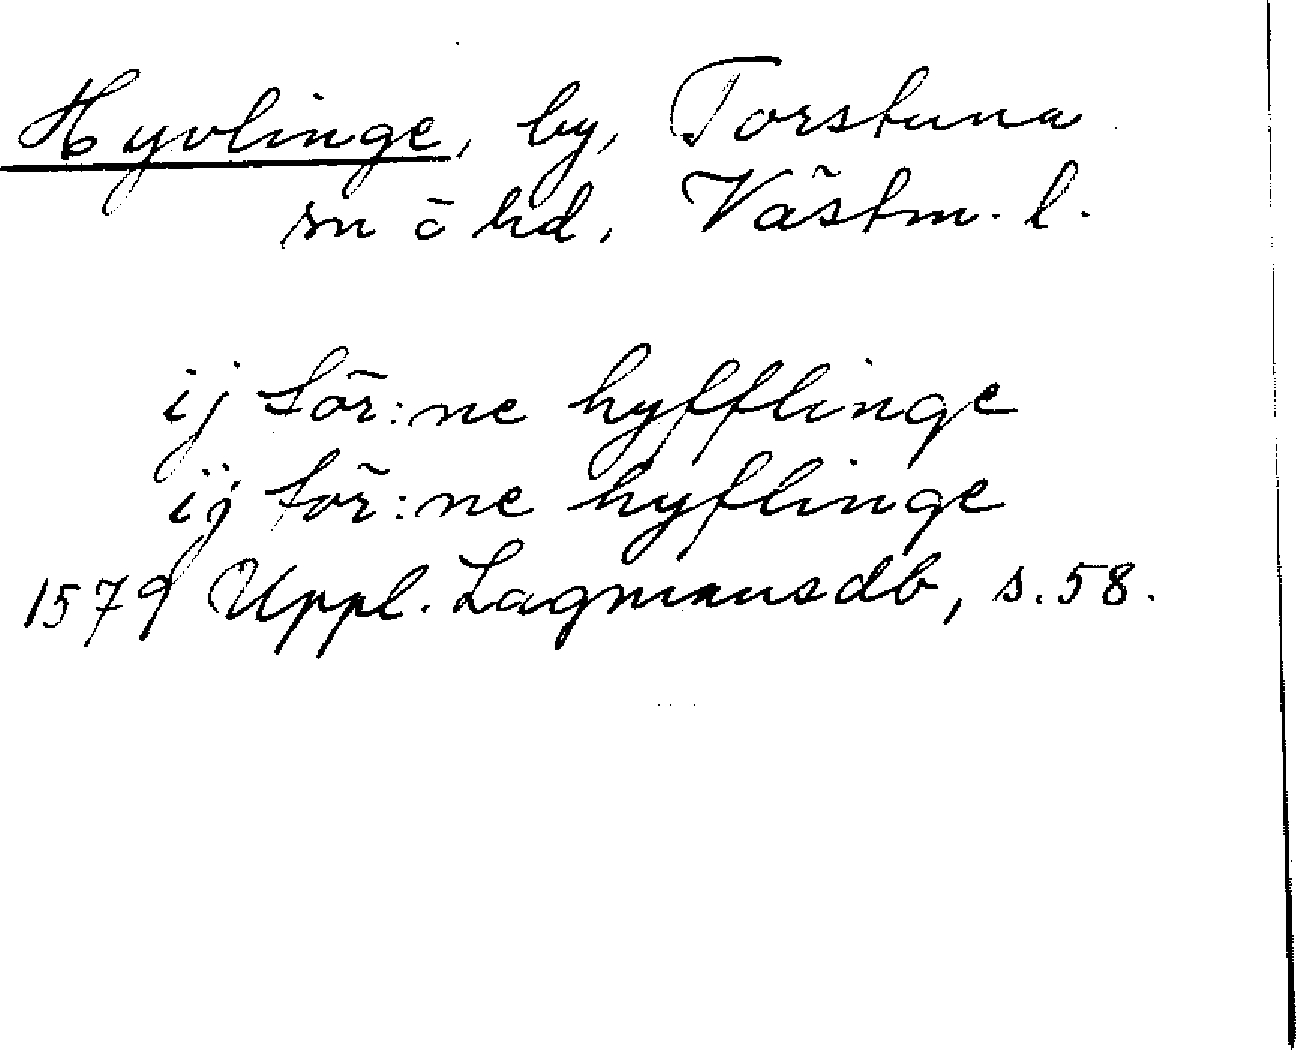 Hyvlinge, by, Torstuna
sn o hd, Västm. l.
ij sör:ne hyfflinge
ij sör:ne hyflinge
1579 Uppl. Lagmansdb, s. 58.